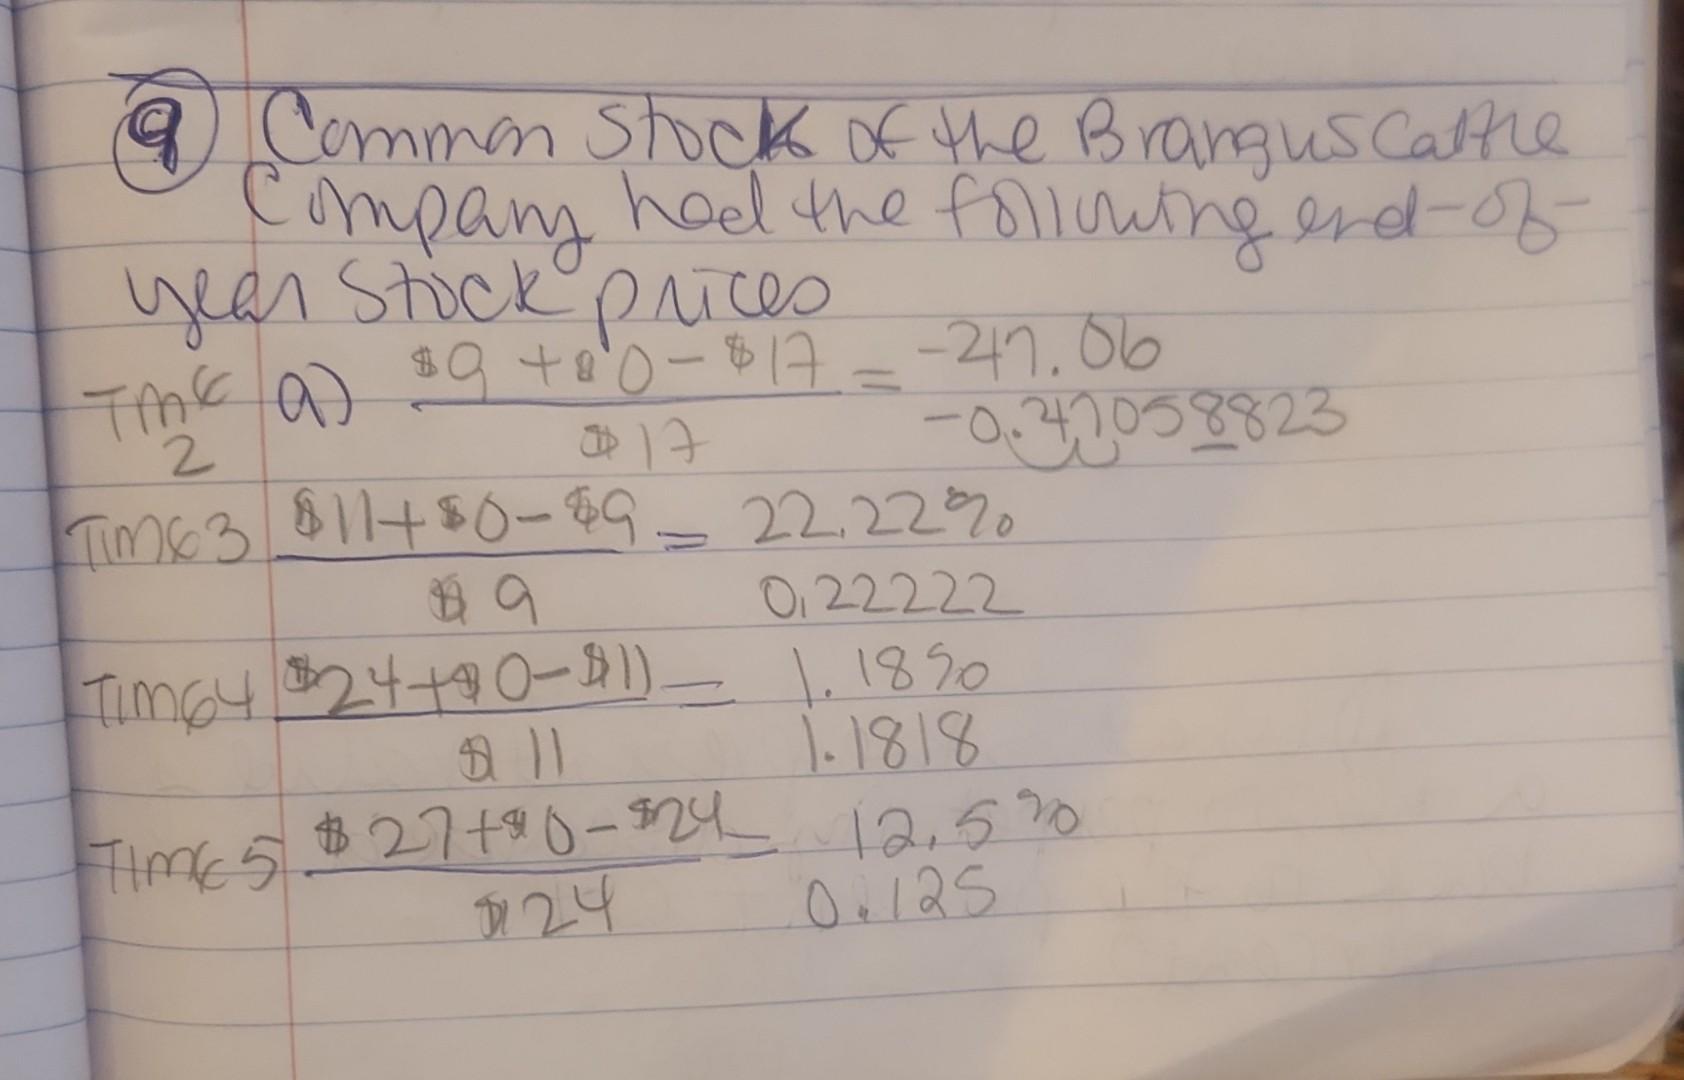 9 Common Stock of the Brangus Cattle
Company had the following end-of-
year Stock prices
Time 2 a) $9 + $0 - $17 = -47.06
$17 -0.47058823
Time 3 $11 + $0 - $9 = 22.22%
$9 0.22222
Time 4 $24 + $0 - $11 = 1.18%
$11 1.1818
Time 5 $27 + $0 - $24 = 12.5%
$24 0.125